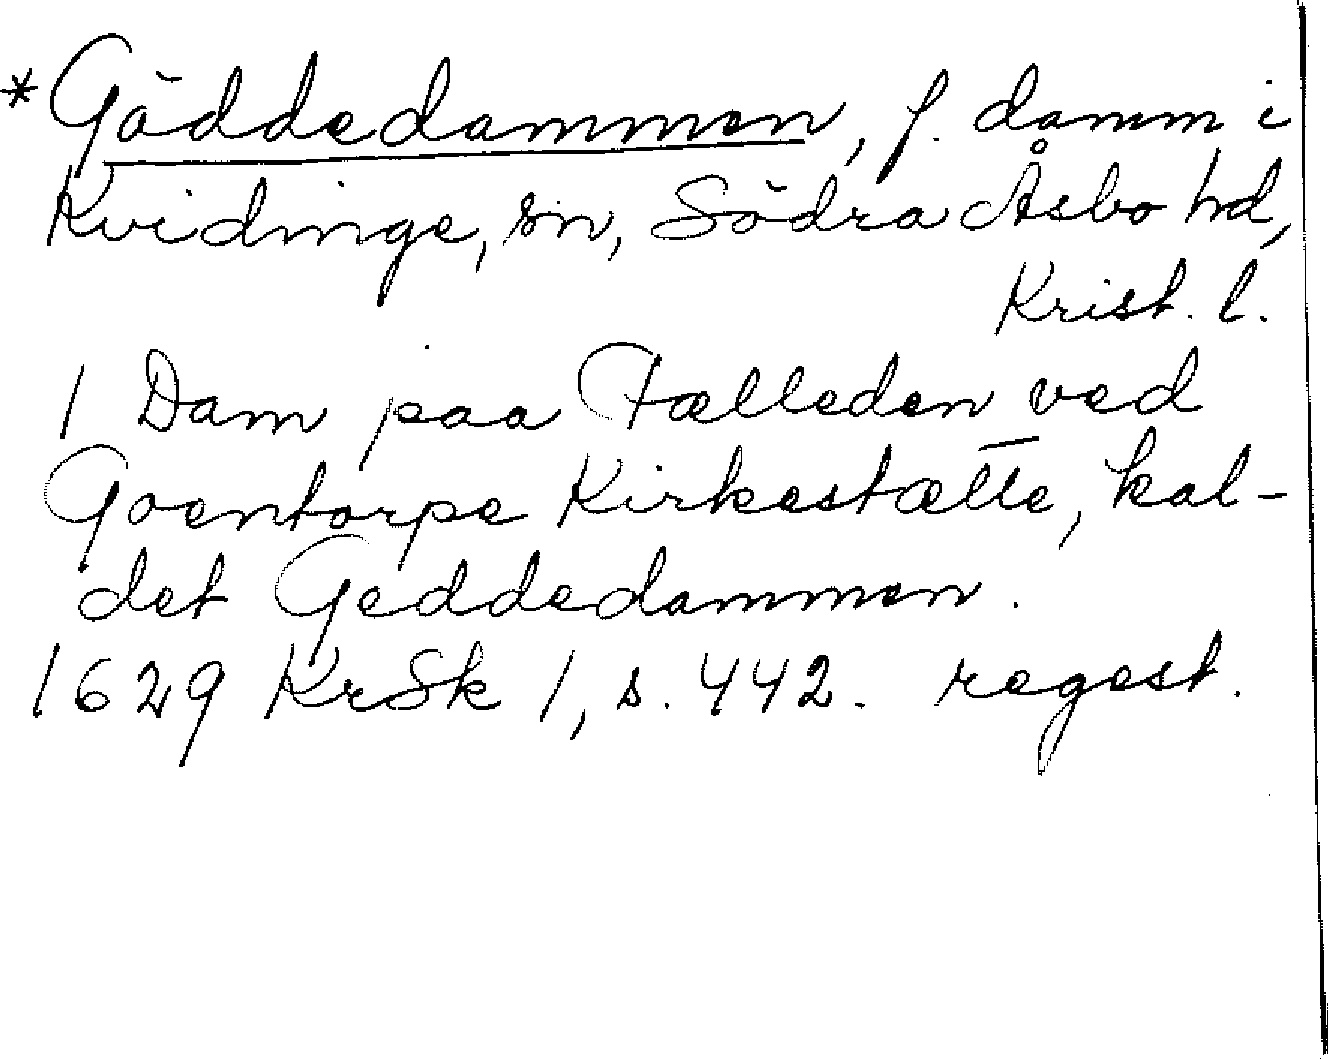 *Gäddedammen, f. damm i
Kvidinge, sn, Södra Åsbo hd,
Krist. l.
1 Dam paa Fælleden ved
Goentorpe Kirkestætte, kal-
det Geddedammen.
1629 KrSk 1, s. 442. regest.